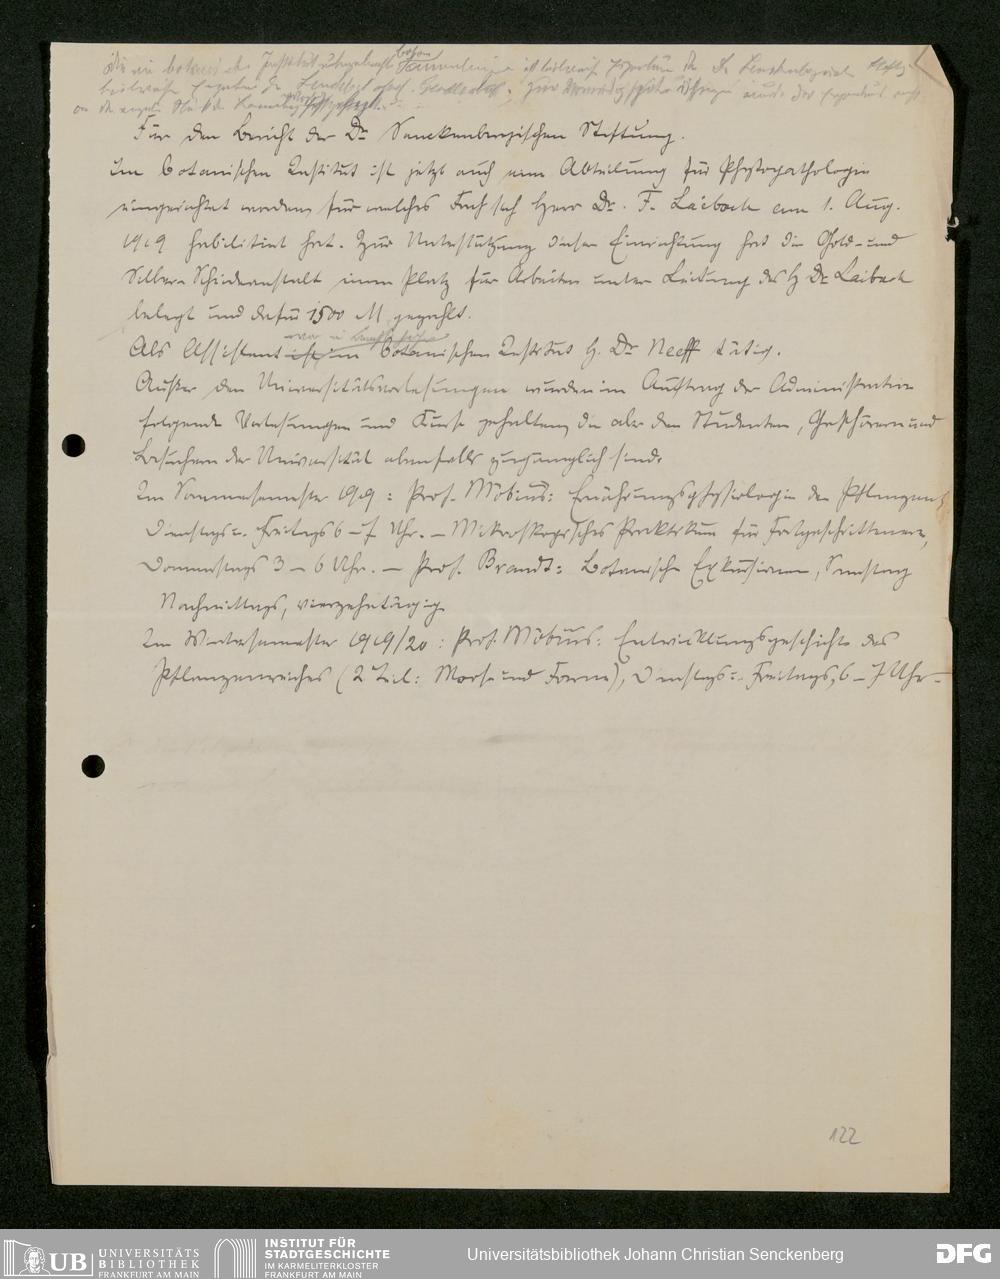 Die im botanischen Institut untergebrachte botan. Sammlungen ist teilweise Eigentum der Dr. Senckenbergischen Stiftg.
teilweise Senckenbg. naturf. Gesellschaft.
Für den Bericht der Dr. Senckenbergischen Stiftung.
Im botanischen Institut ist jetzt auch eine Abteilung für Phytopathologie
eingerichtet worden, für welches Fach sich Herr Dr. F. Laibach am 1. Aug.
1919 habilitiert hat. Zur Unterstützung dieser Einrichtung hat die Gold- und
Silber-Scheideanstalt einen Platz für Arbeiten unter Leitung des H. Dr. Laibach
belegt und dafür 1500 M gezahlt.
Als Assistent ist im war im Berichtsjahre botanischen Institut H. Dr. Neeff tätig.
Außer den Universitätsvorlesungen wurden im Auftrag der Administration
folgende Vorlesungen und Kurse gehalten, die aber den Studenten, Hörern und
Besuchern der Universität ebenfalls zugänglich sind.
Im Sommersemester 1919: Prof. Möbius: Ernährungsphysiologie der Pflanzen,
Dienstags u. Freitags 6-7 Uhr. – Mikroskopisches Praktikum für Fortgeschrittenere,
Donnerstags 3-6 Uhr. – Prof. Brandt: Botanische Exkursionen, Samstag
Nachmittags, vierzehntägig.
Im Wintersemester 1919/20: Prof. Möbius: Entwicklungsgeschichte des
Pflanzenreiches (2. Teil: Moose und Farne), Dienstags u. Freitags, 6-7 Uhr. –
122
UB UNIVERSITÄTS
BIBLIOTHEK
FRANKFURT AM MAIN
INSTITUT FÜR
STADTGESCHICHTE
IM KARMELITERKLOSTER
FRANKFURT AM MAIN
Universitätsbibliothek Johann Christian Senckenberg
DFG